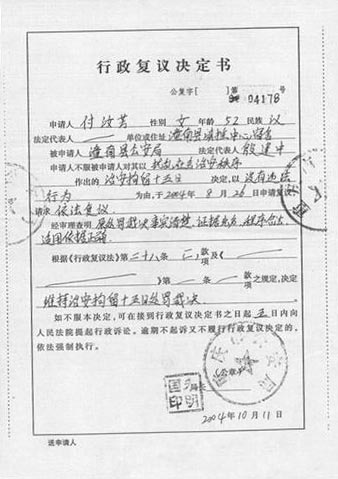 行政复议决定书
公复字[ ]第04178号
申请人 付汝芳 性别 女 年龄 52 民族 汉
法定代表人 单位或住址 潼南县
被申请人 潼南县公安局 法定代表人 段建中
申请人不服被申请人对其以 扰乱社会治安秩序
作出的 治安拘留十五日 决定,以 没有违法
行为 为由,于 2004年 8月 26日申请复议
请求 依法复议
经审理查明 原处罚裁决事实清楚,证据充分,程序合法
适用依据正确
根据《行政复议法》第二十八条 (一) 款
项及(
)第 条 款 项 之规定,决定
维持治安拘留十五日处罚裁决
如不服本决定,可在接到行政复议决定书之日起 五 日内向
人民法院提起行政诉讼。逾期不起诉又不履行行政复议决定的,
依法强制执行。
(公章)
局长
国 明 印
2004年10月11日
送申请人